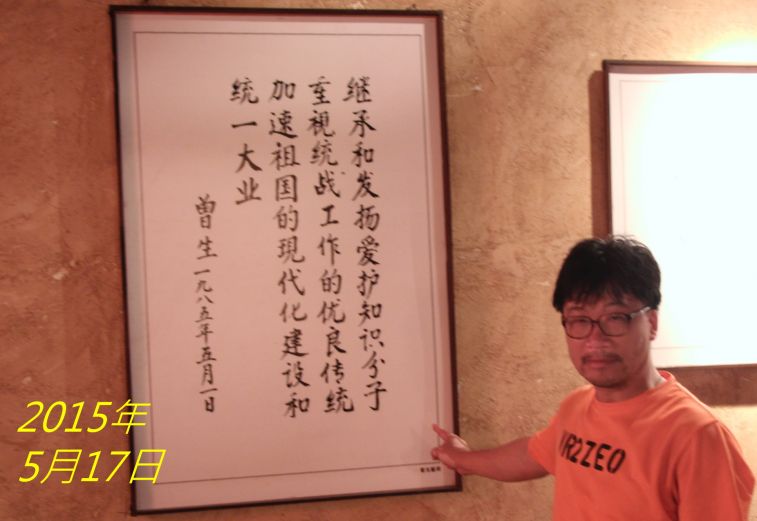 继承和发扬爱护知识分子
重视统战工作的优良传统
加速祖国的现代化建设和
统一大业
曾生一九八五年五月一日
2015年
5月17日
VR2ZEO